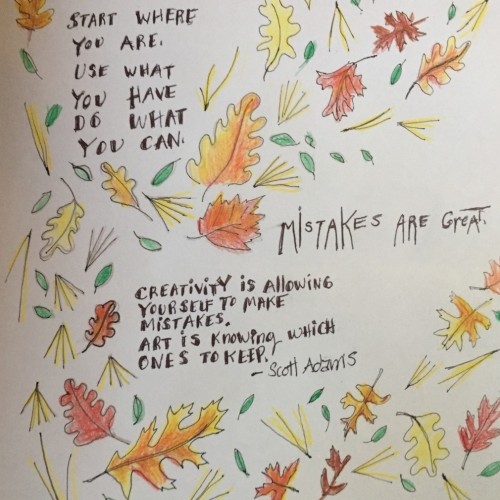 START WHERE
YOU ARE.
USE WHAT
YOU HAVE
DO WHAT
YOU CAN.
MISTAKES ARE GREAT.
CREATIVITY IS ALLOWING
YOURSELF TO MAKE
MISTAKES.
ART IS KNOWING WHICH
ONES TO KEEP.
- Scott Adams